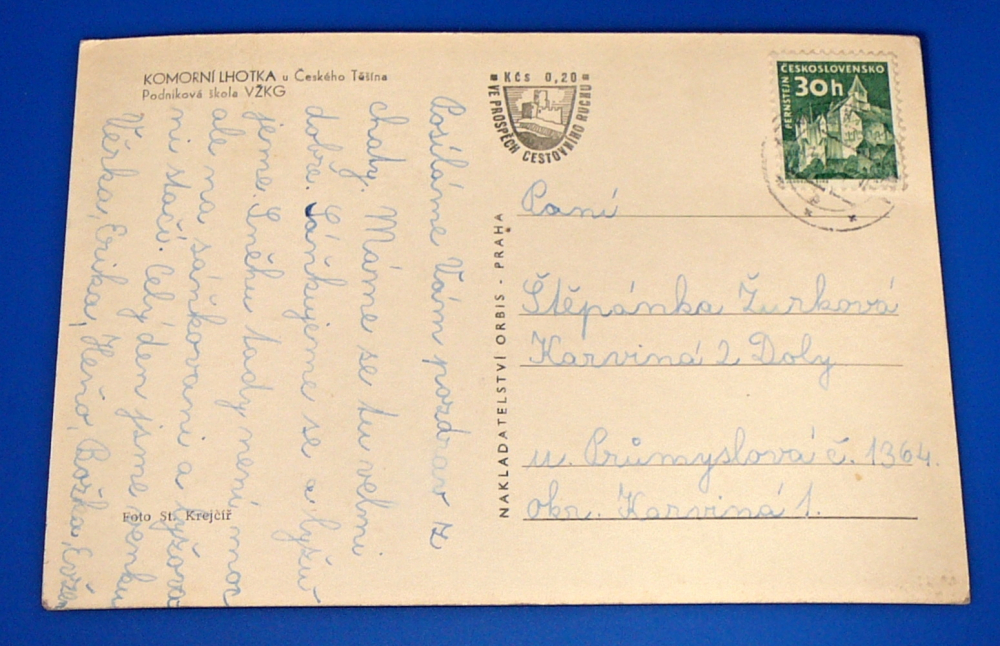 KOMORNÍ LHOTKA u Českého Těšína
Podniková škola VŽKG
Kčs 0,20
VE PROSPĚCH CESTOVNÍHO RUCHU
ČESKOSLOVENSKO
30h
PERNŠTEJN
Posíláme Vám pozdrav z
chaty. Máme se tu velmi
dobře. Sáňkujeme se a lyžu-
jeme. Sněhu tady není moc
ale na sáňkovaní a lyžova-
ní stačí. Celý den jsme venku
Věrka, Erika, Heňo, Božka, Evžen
Foto St. Krejčíř
NAKLADATELSTVÍ ORBIS - PRAHA
Paní
Štěpánka Žurková
Karviná 2 Doly
u. Průmyslová č. 1364.
okr. Karviná 1.